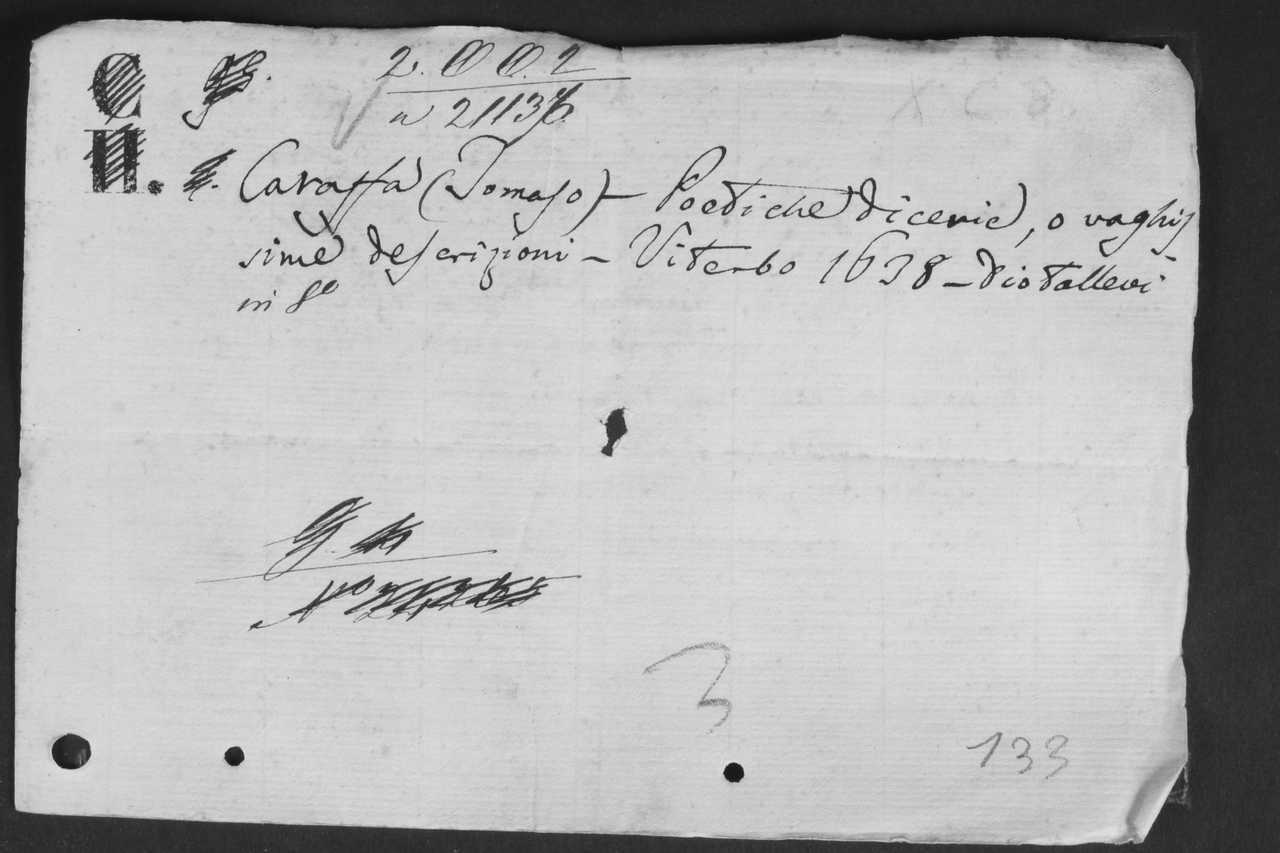 2. O O. 2
n 21136
X C B
Caraffa (Tomaso) – Poetiche dicerie, o vaghis
sime descrizioni – Viterbo 1638 – Diotallevi
in 8º
3
133